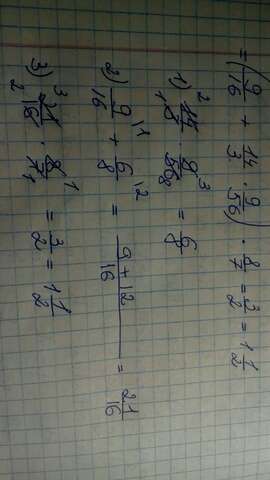 = (9/16 + 14/3 · 9/56) · 8/7 = 3/2 = 1 1/2
1) 14/3 · 9/56 = 6/8
2) 9/16 + 6/8 = 9+12/16 = 21/16
3) 21/16 · 8/7 = 3/2 = 1 1/2